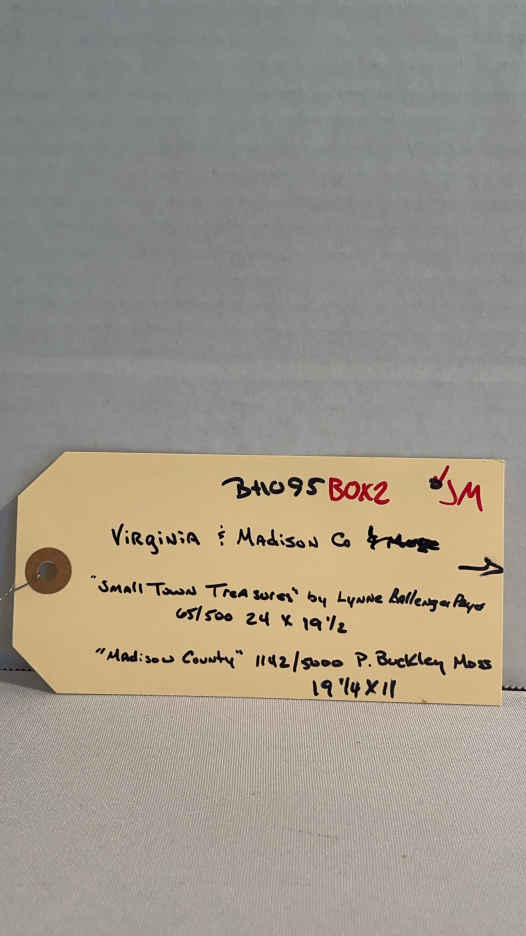 BH1095 BOX2 JM
Virginia & Madison Co &
"Small Town Treasures" by Lynne Ballenger
65/500 24 X 19 1/2
"Madison County" 1142/5000 P. Buckley Moss
19 1/4 X 11